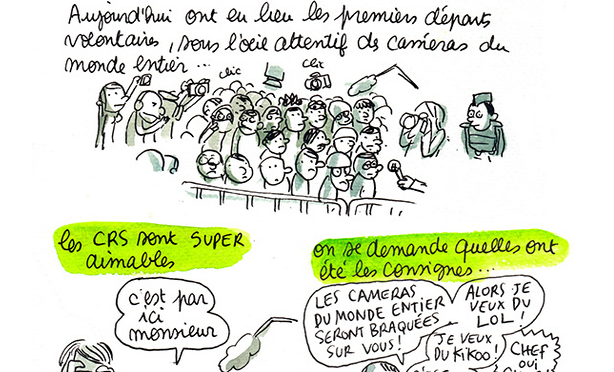 Aujourd'hui ont eu lieu les premiers départs
volontaires, sous l'œil attentif de caméras du
monde entier...
clic
clic
les CRS sont SUPER
aimables
on se demande quelles ont
été les consignes...
c'est par
ici
monsieur
LES CAMERAS
DU MONDE ENTIER
SERONT BRAQUÉES
SUR VOUS !
ALORS JE
VEUX DU
LOL !
JE VEUX
DU KIKOO !
CHEF
OUI